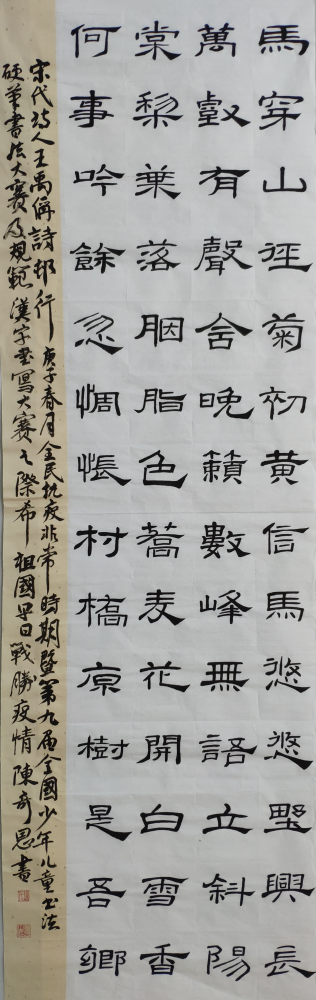 馬穿山徑菊初黄信馬悠悠墅興長
萬壑有聲含晚籟數峰無語立斜陽
棠棃葉落胭脂色蕎麦花開白雪香
何事吟餘忽惆悵村橋原樹是吾鄉
宋代詩人王禹偁詩邨行 庚子春月全民抗疫非常時期暨第九届全國少年儿童书法
硬筆書法大賽及規範漢字書寫大賽之際希祖國早日戰勝疫情 陳奇恩書